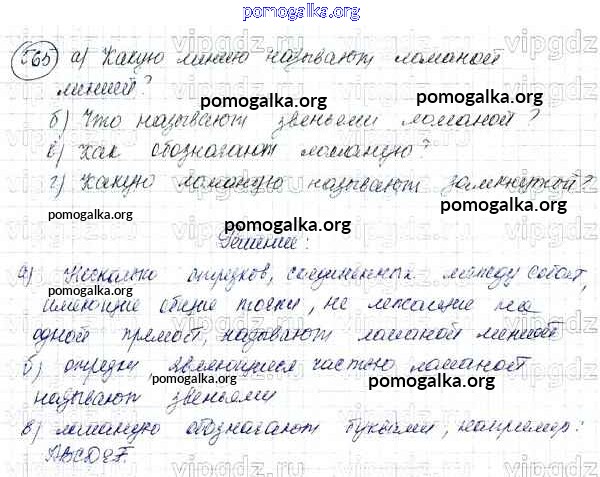 pomogalka.org
565 а) Какую линию называют ломаной
линией?
pomogalka.org pomogalka.org
б) Что называют звеньями ломаной?
в) Как обозначают ломаную?
pomogalka.org
г) Какую ломаную называют замкнутой?
pomogalka.org pomogalka.org
pomogalka.org
Решение:
а) Несколько отрезков, соединенных между собой,
pomogalka.org pomogalka.org
имеющие общие точки, не лежащие на
одной прямой, называют ломаной линией
б) отрезки являющиеся частью ломаной
pomogalka.org pomogalka.org
называют звеньями
в) ломаную обозначают буквами, например:
ABCDEF.